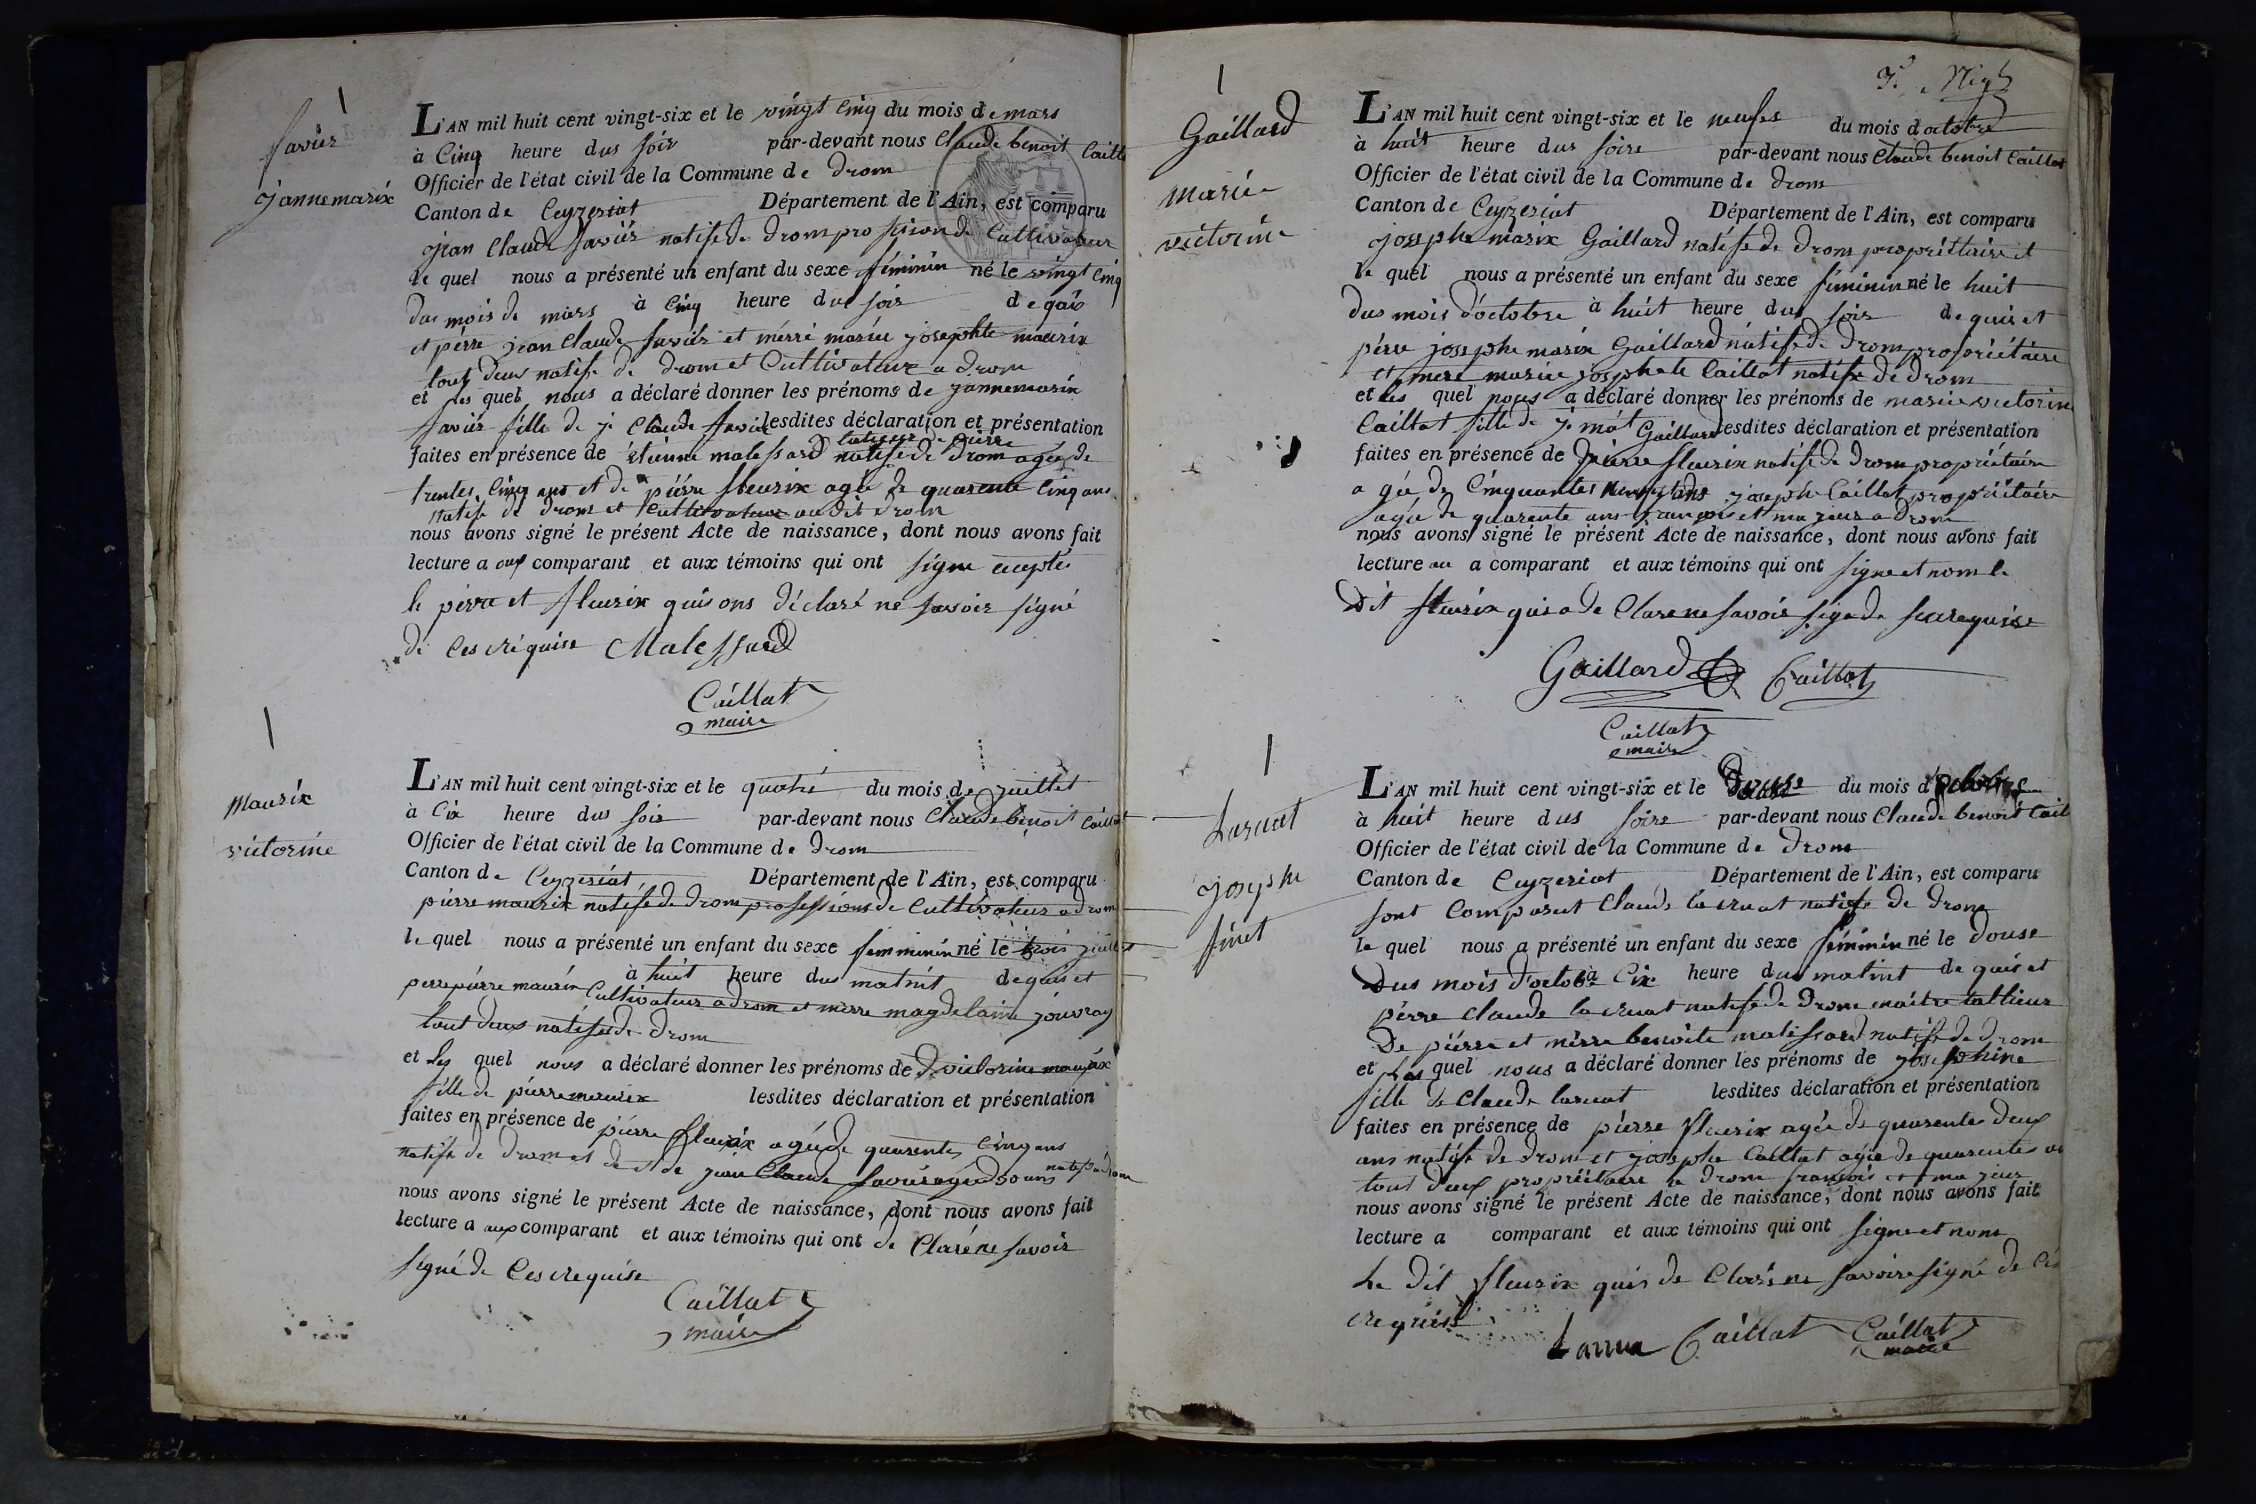 favier
jannemarie
L'AN mil huit cent vingt-six et le vingt cinq du mois de mars
à Cinq heure dus soir par-devant nous Claude benoit Caillat
Officier de l'état civil de la Commune de drom
Canton de Ceyzeriat Département de l'Ain, est comparu
jean Claude favier natife de drom profision de Cultivateur
le quel nous a présenté un enfant du sexe féminin né le vingt cinq
dus mois de mars à cinq heure dus soir de quis
et pérre jean Claude favier et mérre mariee josephte maurix
tout deux natife de drom et Cultivateur a drom
et les quel nous a déclaré donner les prénoms de jannemarie
favier fille de j. Claude favier lesdites déclaration et présentation
faites en présence de étienne malessard natife de drom agée de
trentes cinq ans et de pierre fleurix agée de quarente cinq ans
natife de drom et Cultivateur au dit drom
nous avons signé le présent Acte de naissance, dont nous avons fait
lecture a aux comparant et aux témoins qui ont signe excepté
le pérre et fleurix quis ons déclaré ne savoir signé
de ces réquise Malessard
Caillat
maire
maurix
victorine
L'AN mil huit cent vingt-six et le quatré du mois de juillet
à Cix heure dus soir par-devant nous Claude benoit Caillat
Officier de l'état civil de la Commune de drom
Canton de Ceyzeriat Département de l'Ain, est comparu
pierre maurix natife de drom professions de Cultivateur a drom
le quel nous a présenté un enfant du sexe femminin né le trois juillet
à huit heure dus matint de quis et
perre pierre maurix Cultivateur a drom et mérre magdelaine jouvray
tout deux natife de drom
et les quel nous a déclaré donner les prénoms de victorine maurix
fille de pierre maurix lesdites déclaration et présentation
faites en présence de pierre fleurix agée de quarentes cinq ans
natife de drom et de jean Claude favier agée 30 ans natif a drom
nous avons signé le présent Acte de naissance, dont nous avons fait
lecture a aux comparant et aux témoins qui ont de Claré ne savoir
signé de Ces requise
Caillat
maire
Gaillard
mariee
victorine
L'AN mil huit cent vingt-six et le neufes du mois doctobre
à huit heure dus soire par-devant nous Claude benoit Caillat
Officier de l'état civil de la Commune de drom
Canton de Ceyzeriat Département de l'Ain, est comparu
josephe marix Gaillard natife de drom propriettaire et
le quel nous a présenté un enfant du sexe féminin né le huit
dus mois d'octobre à huit heure dus soir de quis et
pérre josephe marix Gaillard natife de drom proprietaire
et mere mariee josephete Caillat natife de drom
et les quel nous a déclaré donner les prénoms de mariee victorine
Caillat fille de j. mat Gaillard lesdites déclaration et présentation
faites en présence de pierre fleurix natife de drom propriétaire
agée de Cinquantes neufes ans josephe Caillat propriétaire
agée de quarente ans français et majeur a drom
nous avons signé le présent Acte de naissance, dont nous avons fait
lecture au a comparant et aux témoins qui ont signe et nom le
dit fleurix quis a de Clare ne savoir signe de requise
Gaillard Caillat
Caillat
maire
Laruat
josephe
finet
L'AN mil huit cent vingt-six et le douse du mois d'octobre
à huit heure dus soire par-devant nous Claude benoit Cail
Officier de l'état civil de la Commune de drom
Canton de Ceyzeriat Département de l'Ain, est comparu
sont Comparut Claude laruat natife de drom
le quel nous a présenté un enfant du sexe féminin né le douse
dus mois d'octobre à Cix heure dus matint de quis et
pérre Claude laruat natife de drom maitre tallieur
De pierre et mérre benoite malessard natife de drom
et les quel nous a déclaré donner les prénoms de josephine
fille de Claude laruat lesdites déclaration et présentation
faites en présence de pierre fleurix agée de quarentes deux
ans natife de drom et josephe Caillat agée de quarentes
tout deux propriétaire a drom français et majeur
nous avons signé le présent Acte de naissance, dont nous avons fait
lecture a comparant et aux témoins qui ont signe et nom
Le dit fleurix quis de Clare ne savoire signé de
requise
Larrua Caillat Caillat
maire